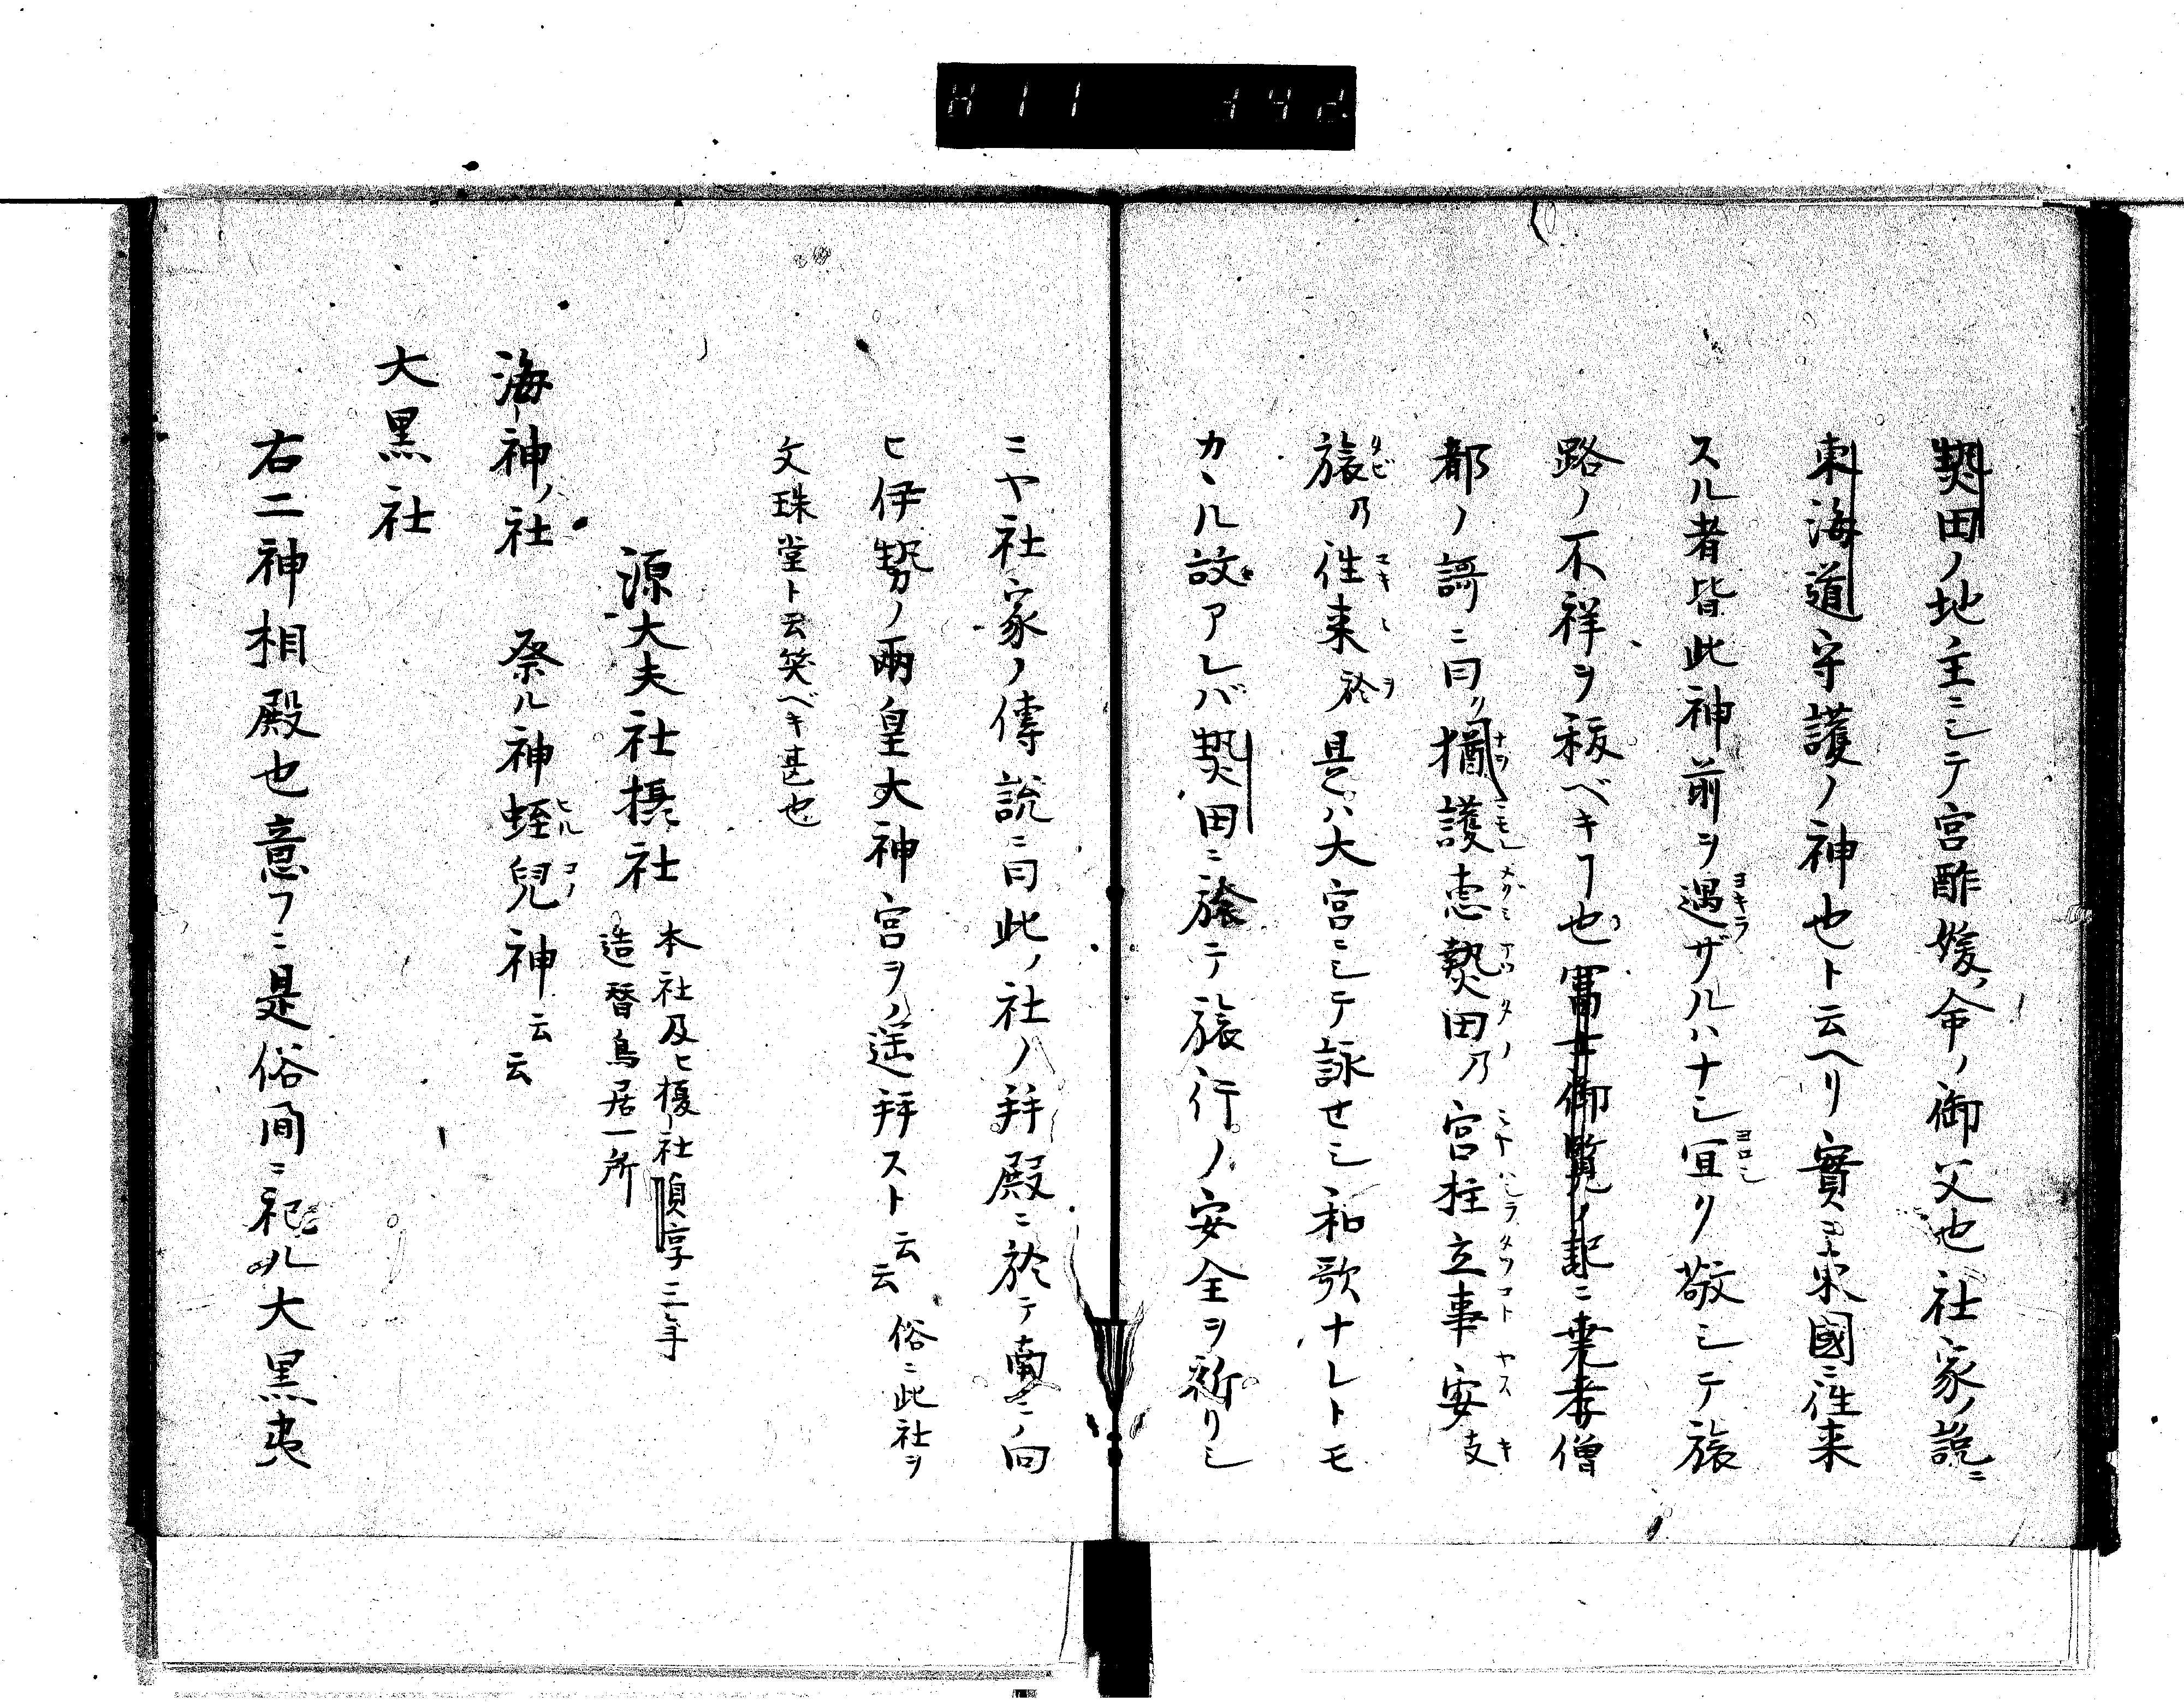 熱田ノ地主ニシテ宮酢媛ノ命ノ御父也社家ノ説ニ
東海道守護ノ神也ト云ヘリ實ニ東國ニ往来
スル者皆此神前ヲ遇ザルハナシ宜リ敬シテ旅
路ノ不祥ヲ秡ベキヿ也冨士御覧ノ記ニ尭孝僧
都ノ謌ニ曰ク猶護恵熱田乃宮柱立事安支
旅乃往来於是ハ大宮ニシテ詠セシ和歌ナレトモ
カヽル設アレバ熱田ニ於テ旅行ノ安全ヲ祈リシ
ニヤ社家ノ傳説ニ曰此ノ社ノ拜殿ニ於テ南ニ向
ヒ伊勢ノ兩皇大神宮ヲ遥拜スト云云俗ニ此社ヲ
文珠堂ト云笑ベキ甚也
源大夫社摂社
本社及ヒ榎社貞享三年
造替鳥居一所
海神ノ社 祭ル神蛭兒神云云
大黒社
右二神相殿也意フニ是俗間ニ祀ル大黒夷